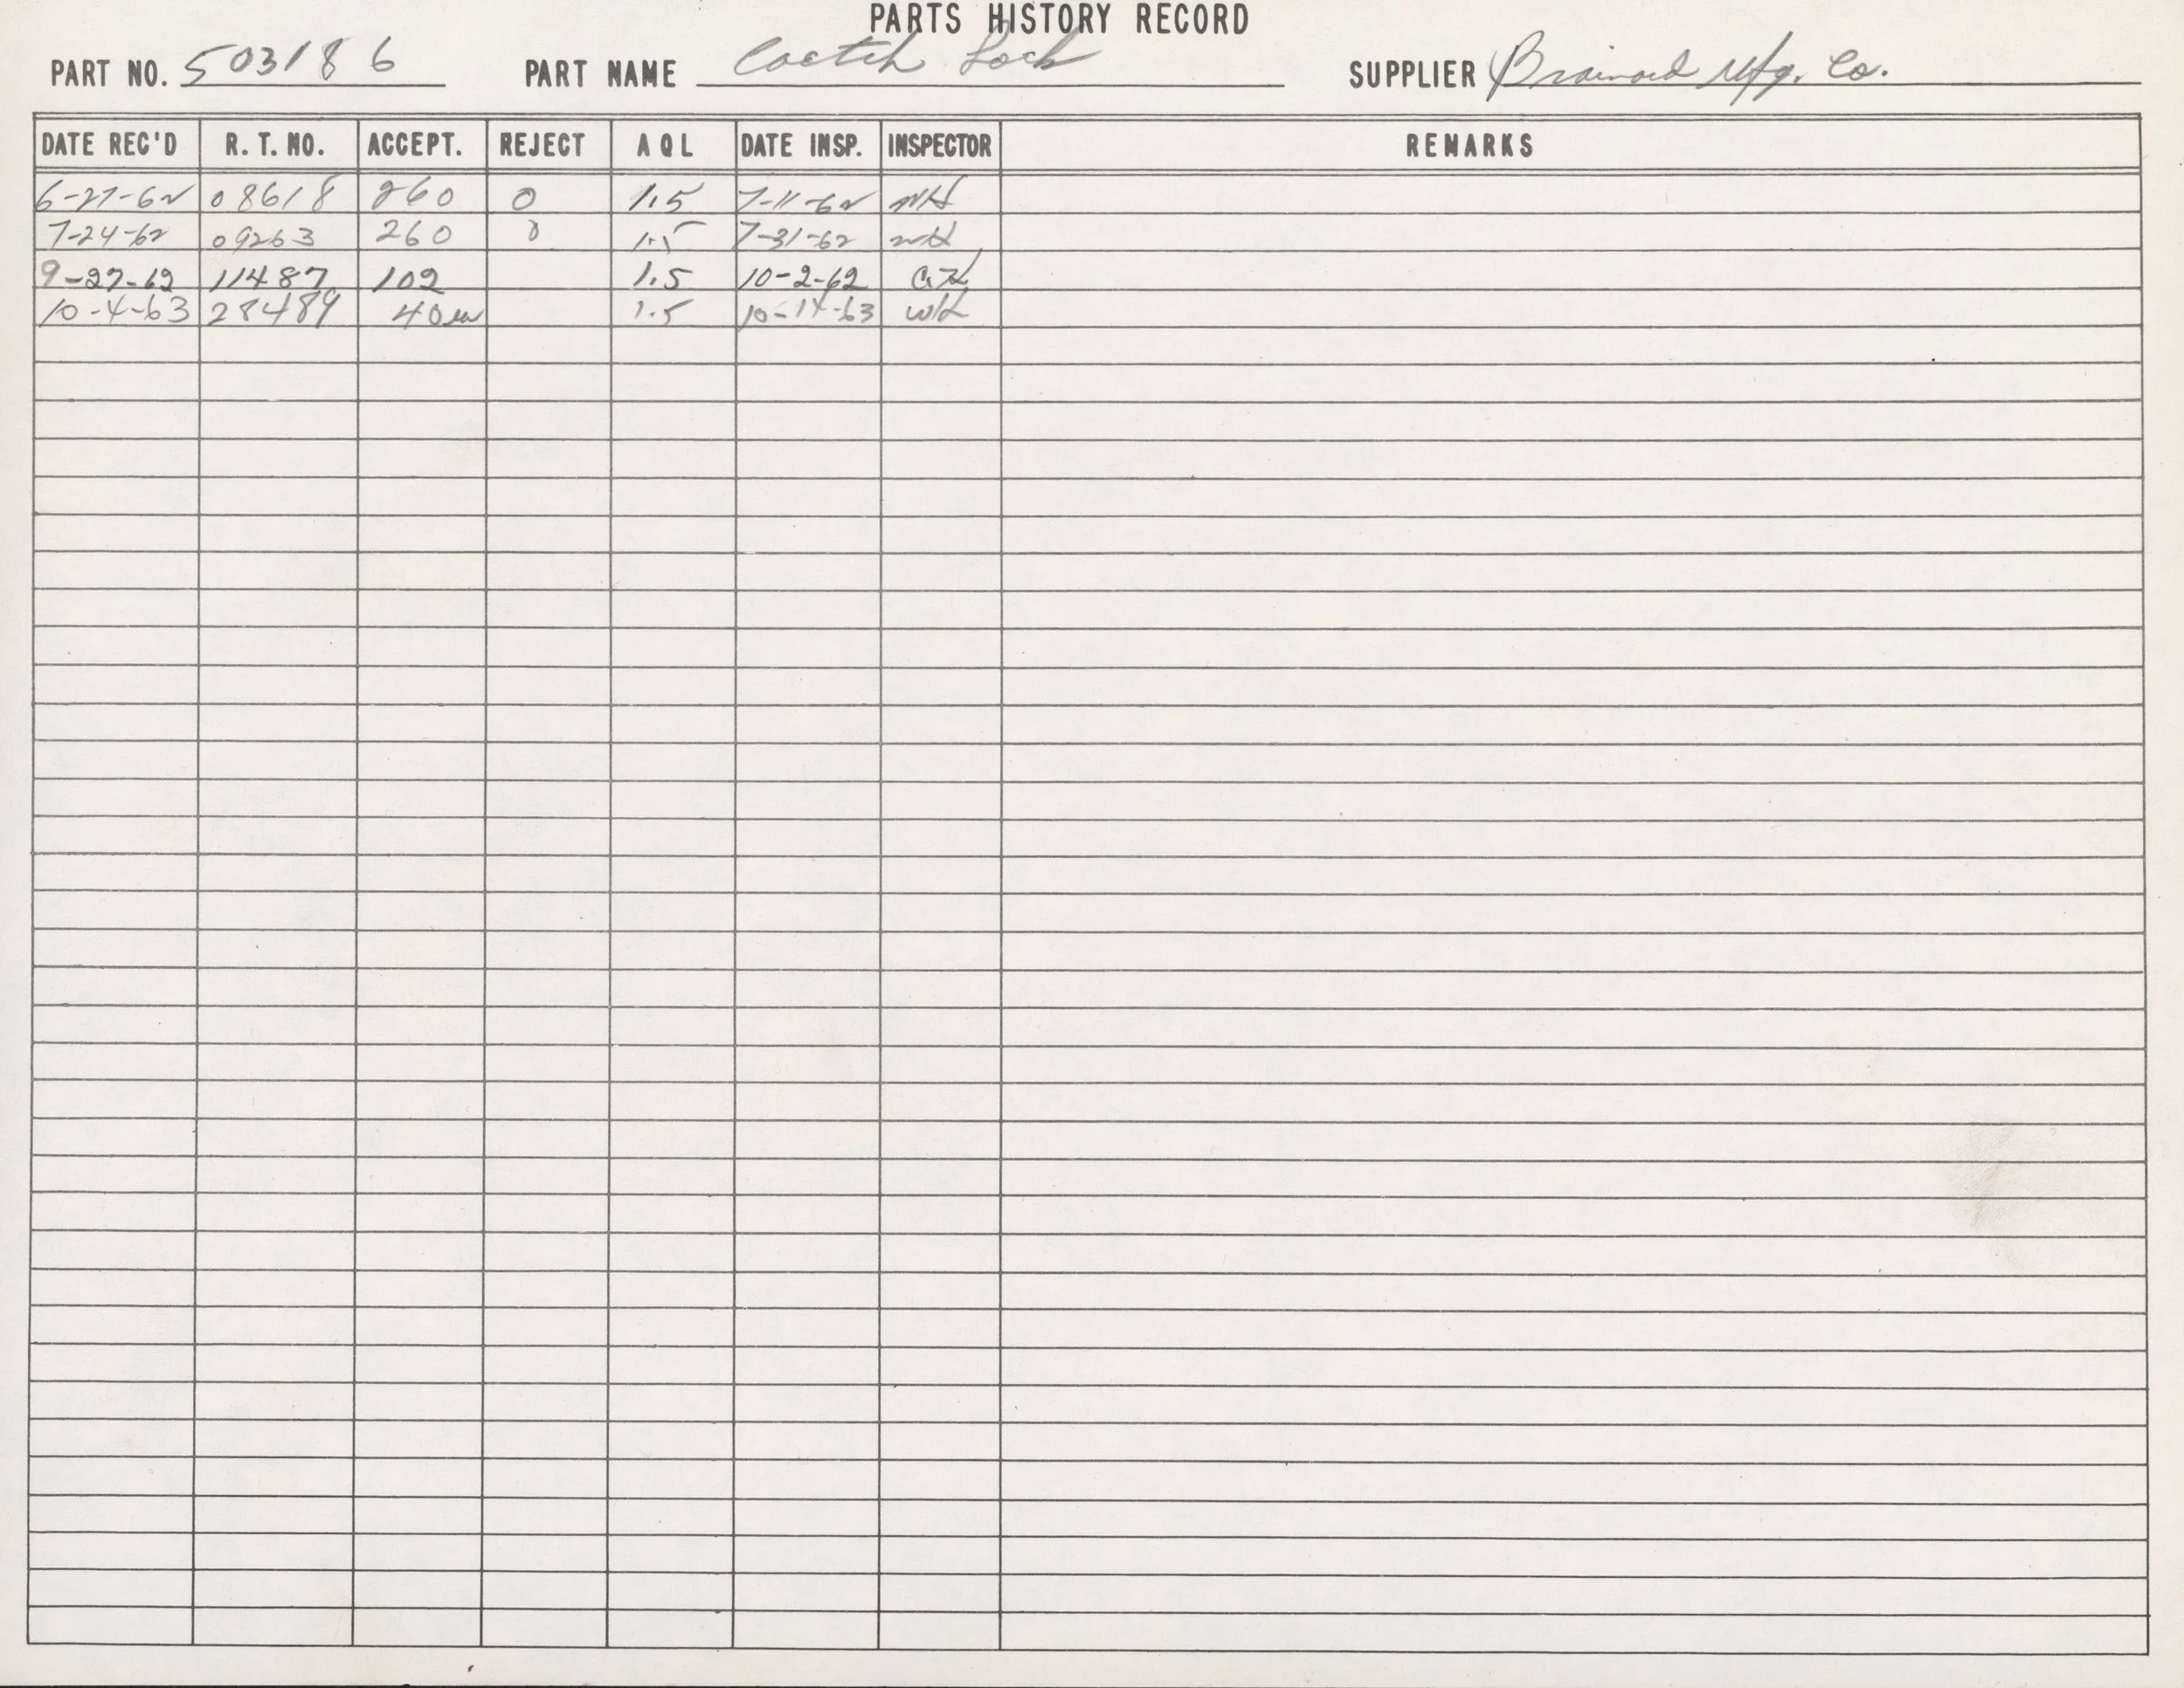 PARTS HISTORY RECORD
PART NO. 503186 PART NAME Lock SUPPLIER Brainard Mfg. Co.
DATE REC'D R.T. NO. ACCEPT. REJECT AQL DATE INSP. INSPECTOR REMARKS
6-27-62 08618 260 0 1.5 7-11-62 WH
7-24-62 09263 260 0 1.5 7-31-62 WH
9-27-62 11487 102 1.5 10-2-62
10-4-63 28489 40 1.5 10-14-63